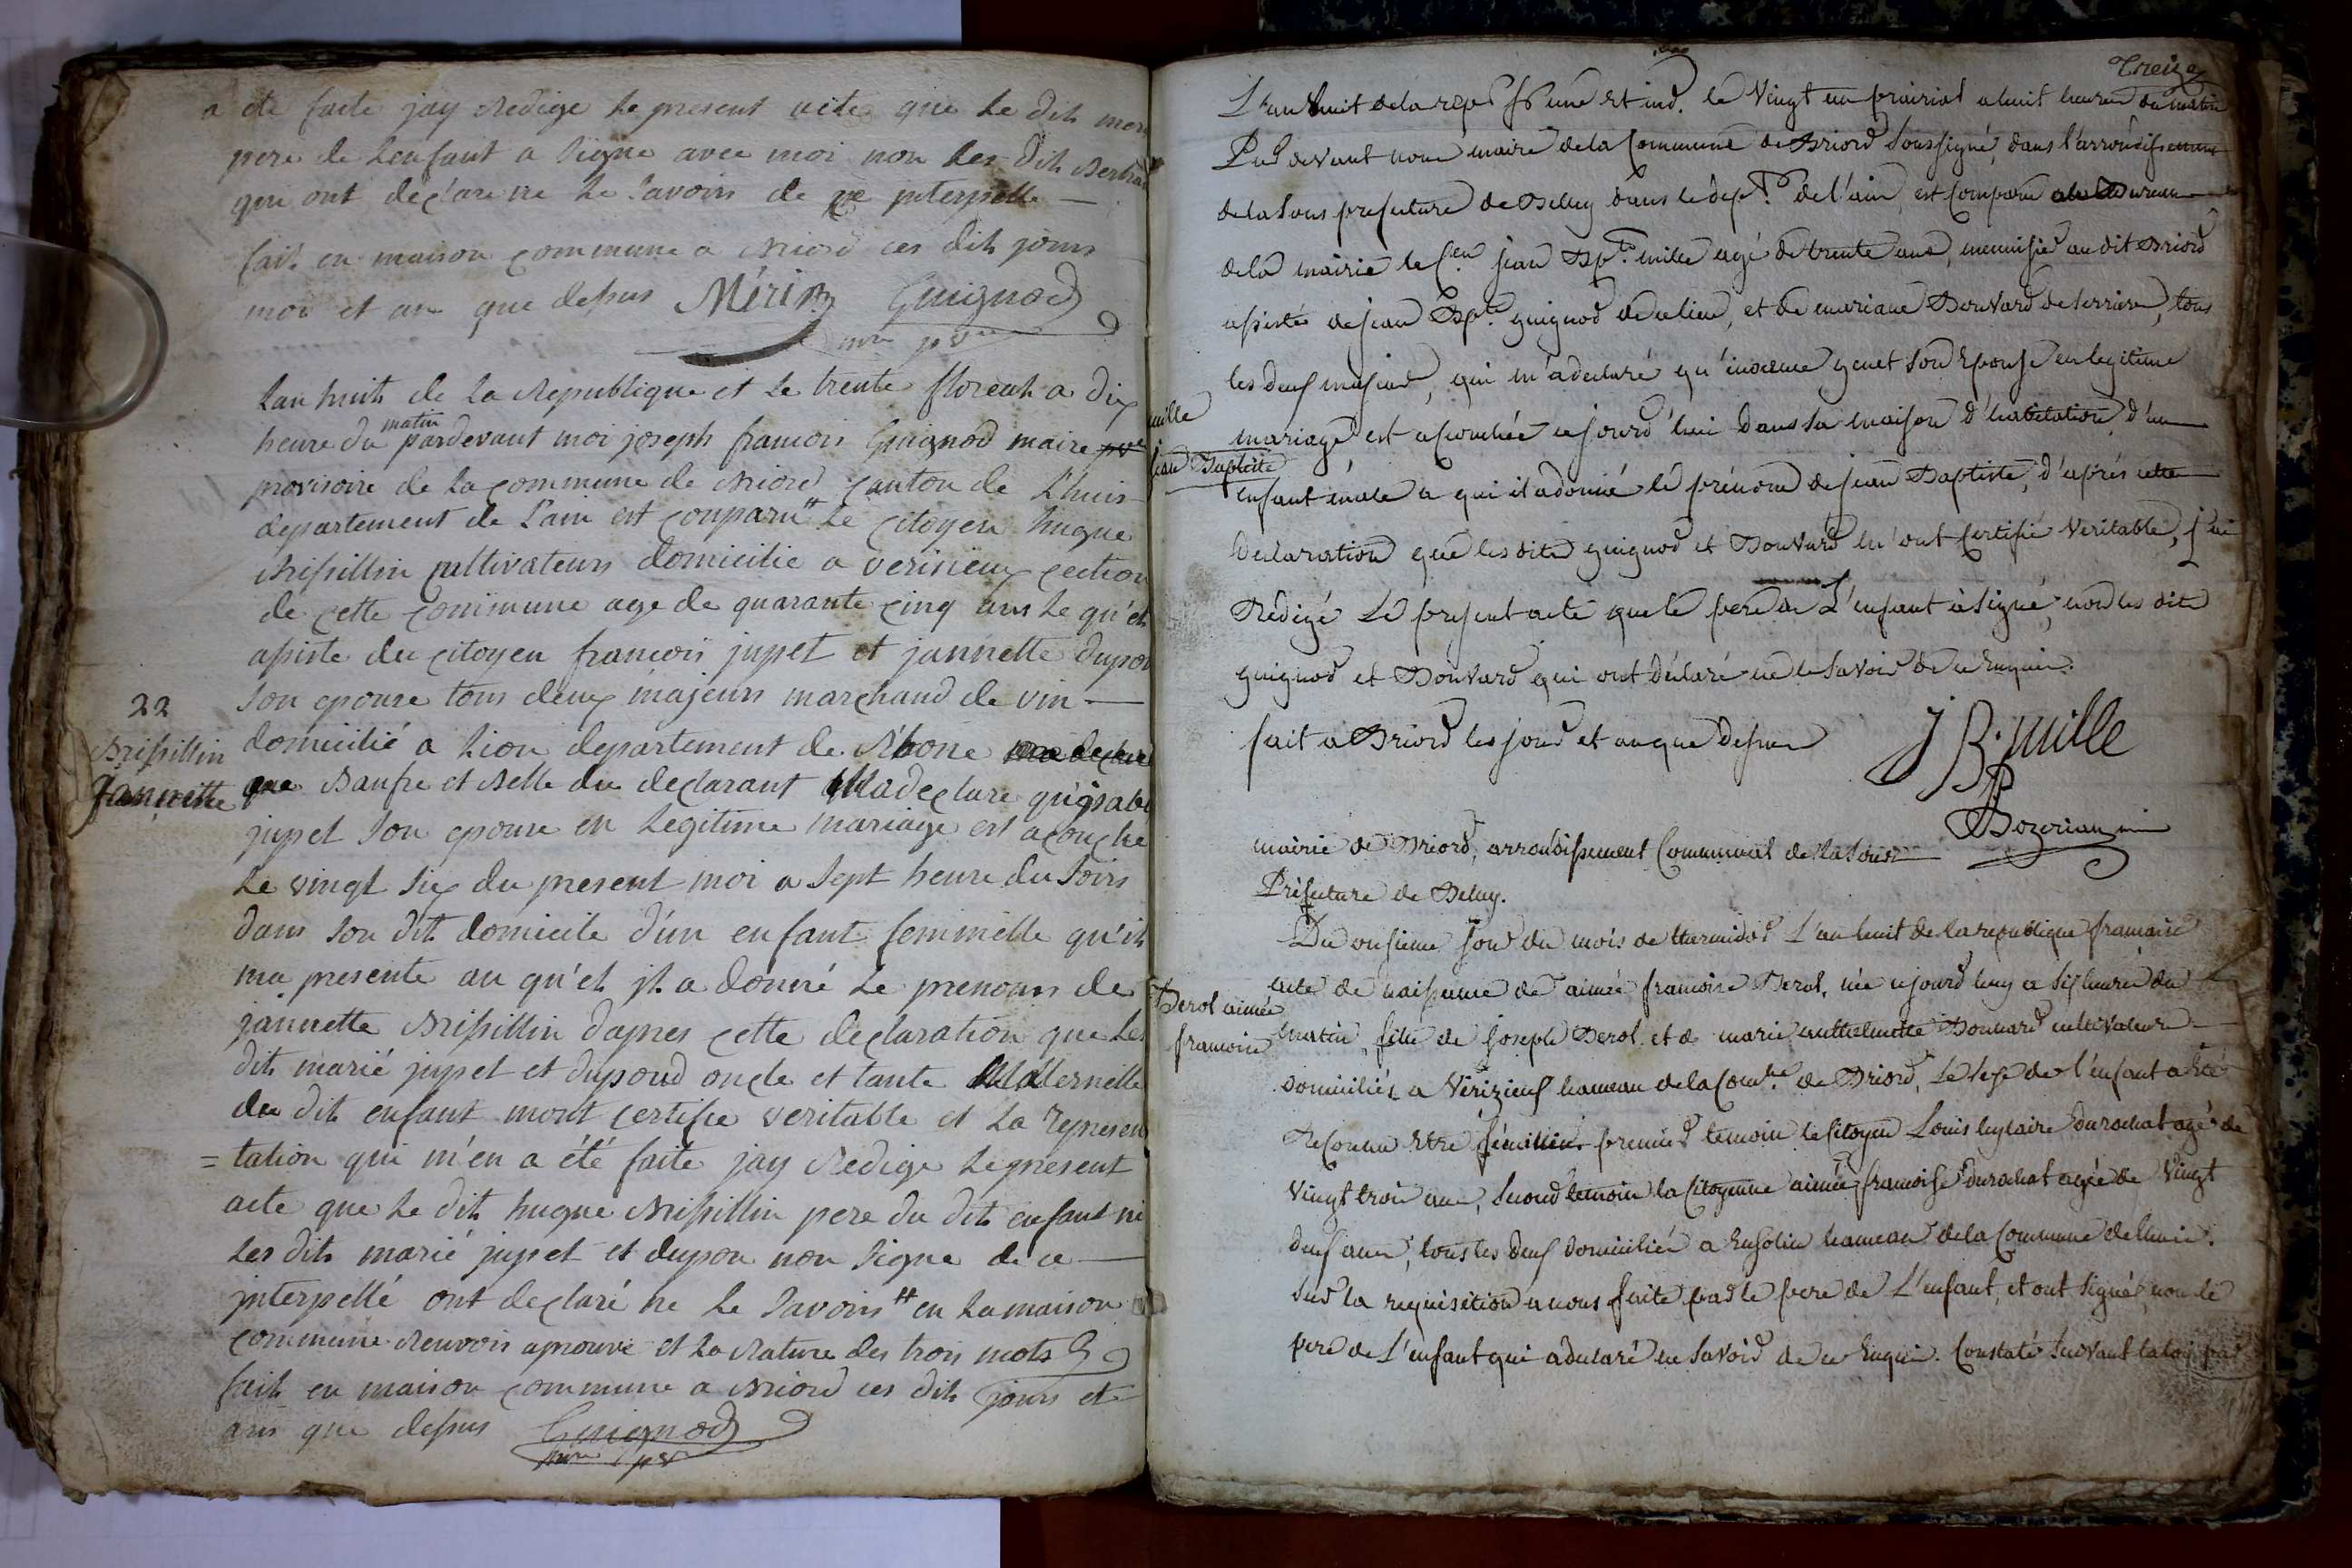 a ete faite jay Redige le present acte que le dit meri
pere de lenfant a signe avec moi non les dits Bertrand
qui ont declare ne le savoirs de ce jnterpelle —
fait en maison commune a Briord ces dit jours
moi et an que desus Mérin Guignod
mre pre
Lan huit de la Republique et le trente floreal a dix
heure du matin pardevant moi joseph francois Guignod maire
provisoire de la commune de Briord Canton de Lhuis
departement de Lain est conparut le Citoyen hugue
Brissillin cultivateurs domicilie a verisieux section
de cette commune age de quarante cinq ans le qu'el
assiste du citoyen francois jupet et jannette dupon
son epouse tous deux majeurs marchand de vin —
22
Brissillin
Jannette
domicilié a Lion departement de Rhone
que Baufre et Belle du declarant Ma declare qu'isabe
jupet son epouse en legitime mariage est acouche
Le vingt six du present moi a sept heure du soirs
dans son dit domicile d'un enfant feminelle qu'il
ma presente au qu'el jl a donné le prenoms de
jannette Brissillin dapres cette declaration que les
dit marié jupet et dupond oncle et tante Maternelle
du dit enfant mont certifie veritable et la represen
= tation qui m'en a été faite jay Redige le present
acte que le dit hugue Brissillin pere du dit enfant ni
les dit marié jupet et dupon non signe de ce —
jnterpellé ont declaré ne le savoirs # en la maison
commune Renvois aprouvé et la Rature des trois mots G
fait en maison commune a Briord ces dit jours et
ans que desus Guignod
mre pre
Treize
L'an huit de la repe fse une et ind. le vingt un prairial a huit heures du matin
Par devant nous maire de la Commune de Briord soussigné, dans l'arrondissement
de la sous prefecture de Belley dans le dept. de l'ain, est comparu au Bureau
de la mairie le Cen jean Bpte. mille agé de trente ans, menuisier au dit Briord
assisté de jean Bpte. guignod de ce lieu, et de mariane Bouvard de serriere, tous
les deux majeurs, qui m'a declaré qu' genet son Epouse en legitime
mille
jean Baptiste
mariage est acouchée ce jourd'hui dans sa maison d'habitation d'un
enfant male a qui il a donné le prénom de jean Baptiste, d'après cette
declaration que les dits guignod et Bouvard m'ont certifié veritable, j'ai
Rédigé Le present acte que le pere de L'enfant à signé, non les dits
guignod et Bouvard qui ont déclaré ne le savoir de ce Enquis.
fait a Briord les jour et an que dessus J B. mille
Bozerian
mairie de Briord, arrondissement Communal de la sous
Préfecture de Belley.
Du onsieme jour du mois de thermidor L'an huit de la republique francaise
acte de naissance de aimée francoise Berol, née ce jourd'huy a six heures du
Berol aimée
francoise
matin, fille de joseph Berol et de marie anthelmette Bouvard cultivateurs
domiciliés a Verizieux hameau de la Comne. de Briord, Le sexe de l'enfant a été
Reconnu Etre féminin premier temoin le Citoyen Louis hylaire durochat agé de
vingt trois ans, second temoin la Citoyenne aimée francoise durochat agée de vingt
deux ans, tous les deux domiciliés a Ensolin hameau de la Commune de lhuis.
sur la requisition a nous faite par le pere de L'enfant, et ont signés, non le
pere de L'enfant qui a declaré ne savoir de ce Enquis. Constaté suivant la loi par